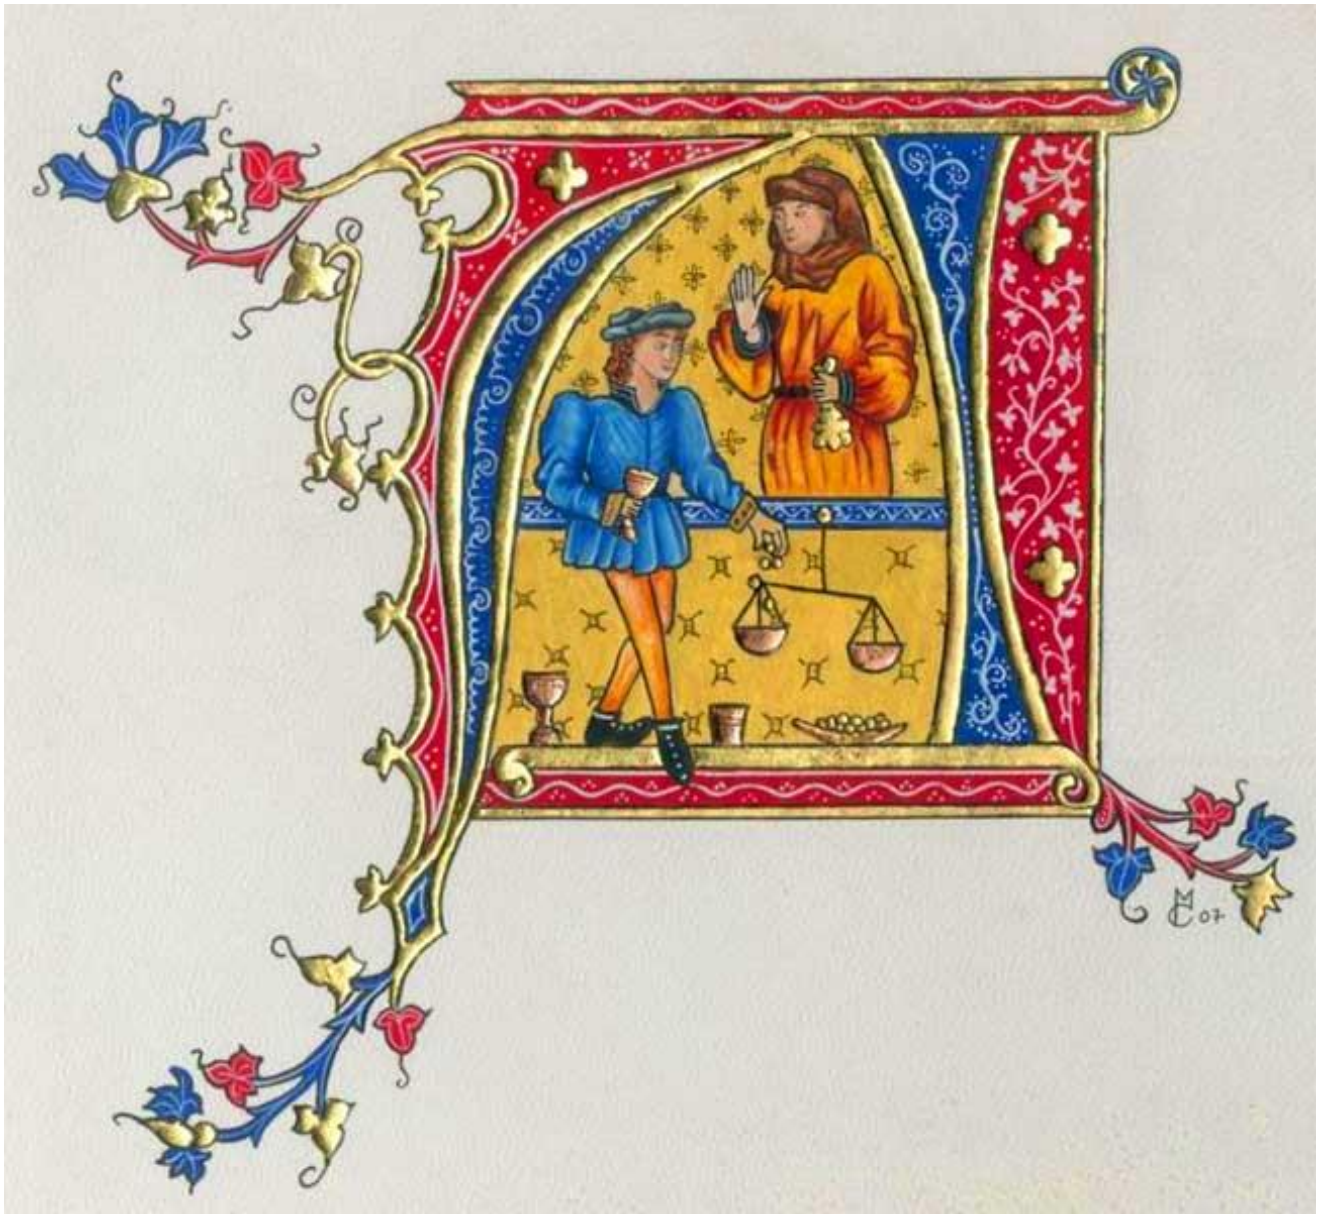 A
MC 07